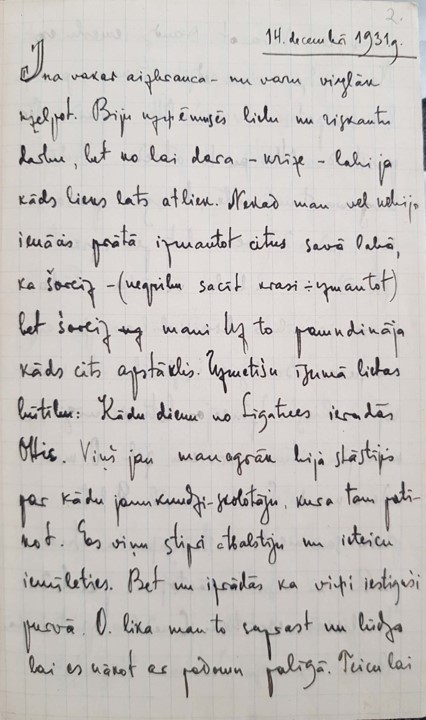 2.
14. decembrī 1931g.
Ina vakar aizbrauca – nu varu vieglāk
uzelpot. Biju uzņēmusēs lielu un riskantu
darbu, bet ko lai dara – krīze – labi ja
kāds lieks lats atliek. Nekad man vēl nebija
ienācis prātā izmantot citus savā labā,
kā šoreiz – (negribu sacīt krasi izmantot)
bet šoreiz mani uz to pamudināja
kāds cits apstāklis. Uzmetīšu īsumā lietas
būtību: Kādu dienu no Līgatnes ieradās
Ottis. Viņš jau manāgrāk bija stāstījis
par kādu jaunkundzi-skolotāju, kura tam pati-
kot. Es viņu stipri atbalstīju un ieteicu
iemīlēties. Bet nu izrādās ka viņi iestiguši
purvā. O. lika man to saprast un lūdza
lai es nākot ar padomu palīgā. Teicu lai